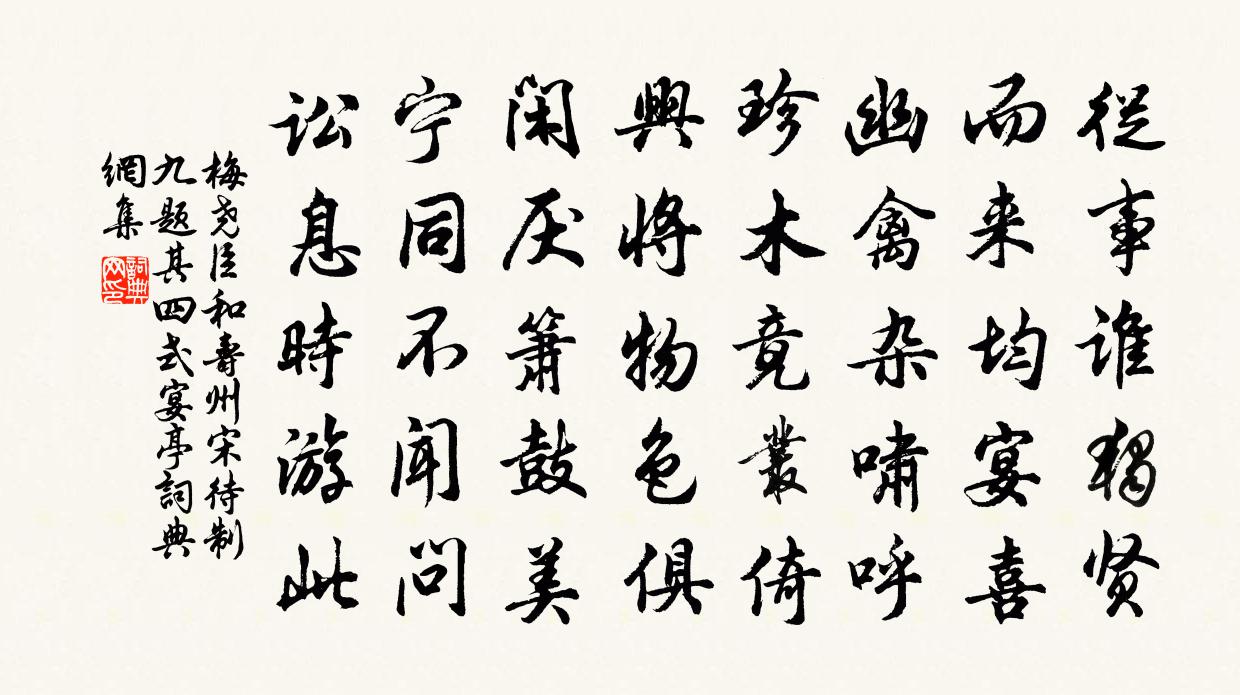 従事谁獨贤
而来均宴喜
幽禽杂嘯呼
珍木竟叢倚
興将物色俱
闲厌箫鼓美
宁同不闻问
讼息時游此
梅尧臣和寿州宋待制
九题其四式宴亭詞典
網集
詞典網印